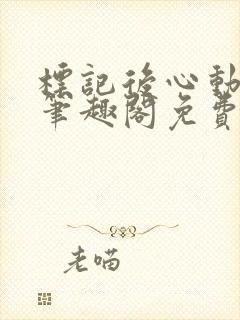 標記後心動
筆趣閣免費
老喵